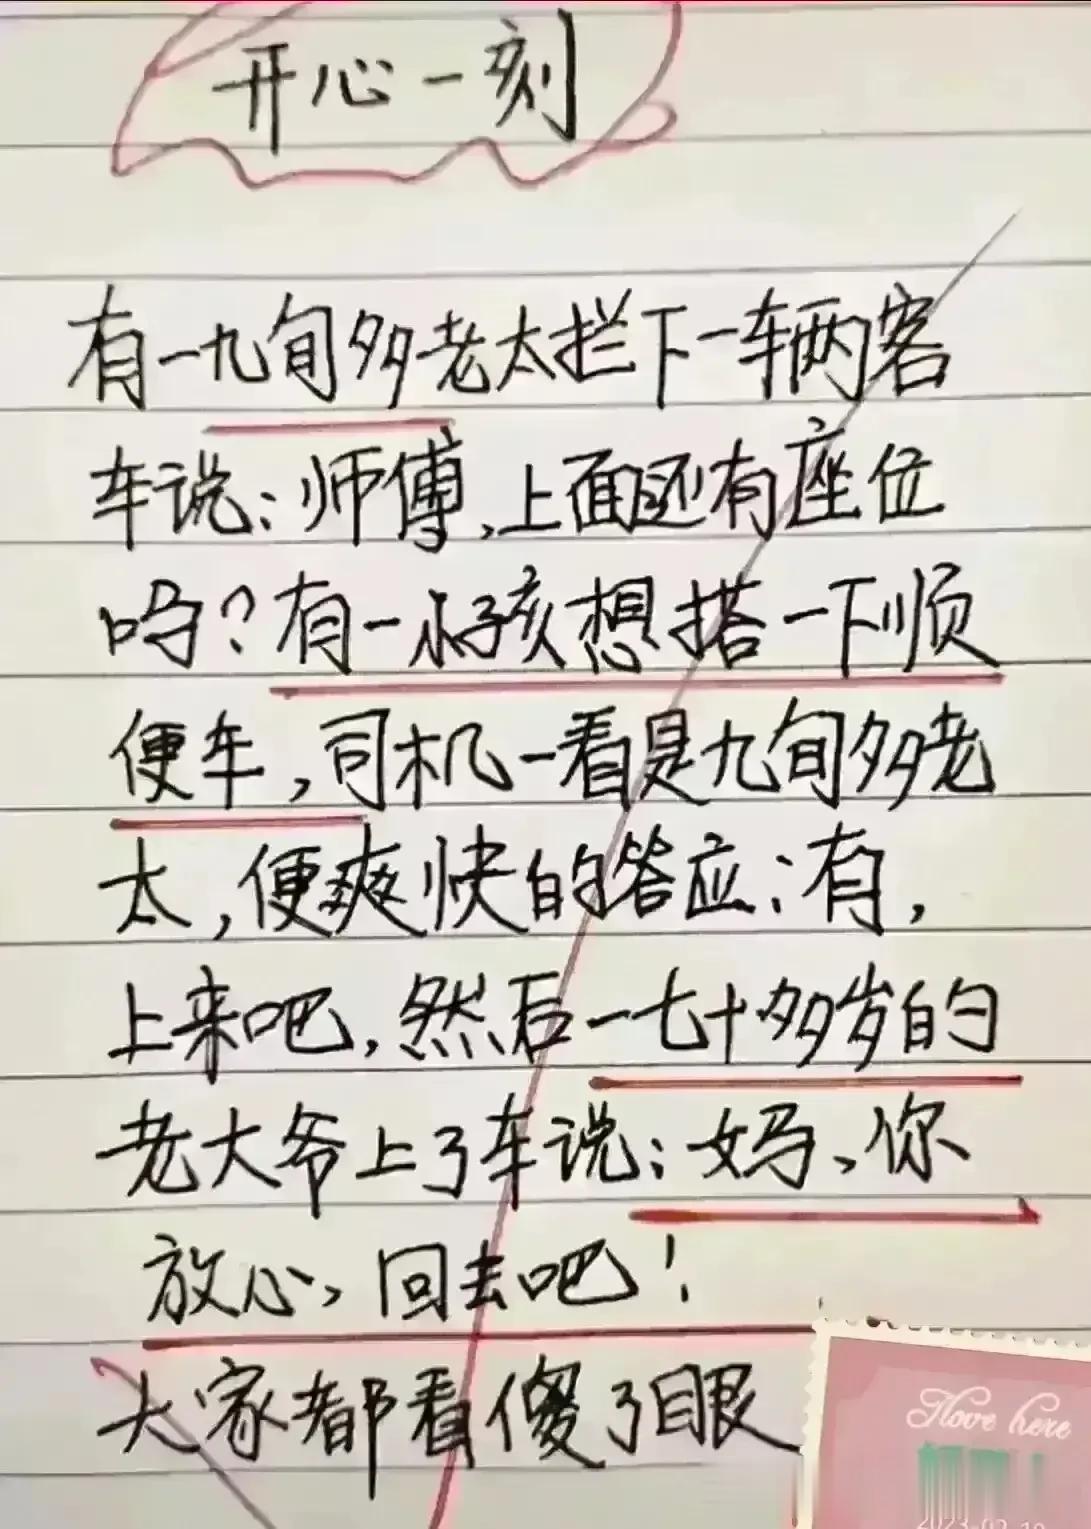 开心一刻
有一九旬多老太拦下一辆客
车说：师傅，上面还有座位
吗？有一小孩想搭一下顺
便车，司机一看是九旬多老
太，便爽快的答应：有，
上来吧，然后一七十多岁的
老大爷上了车说：妈、你
放心，回去吧！
大家都看傻了眼
I love here
2023-02-10